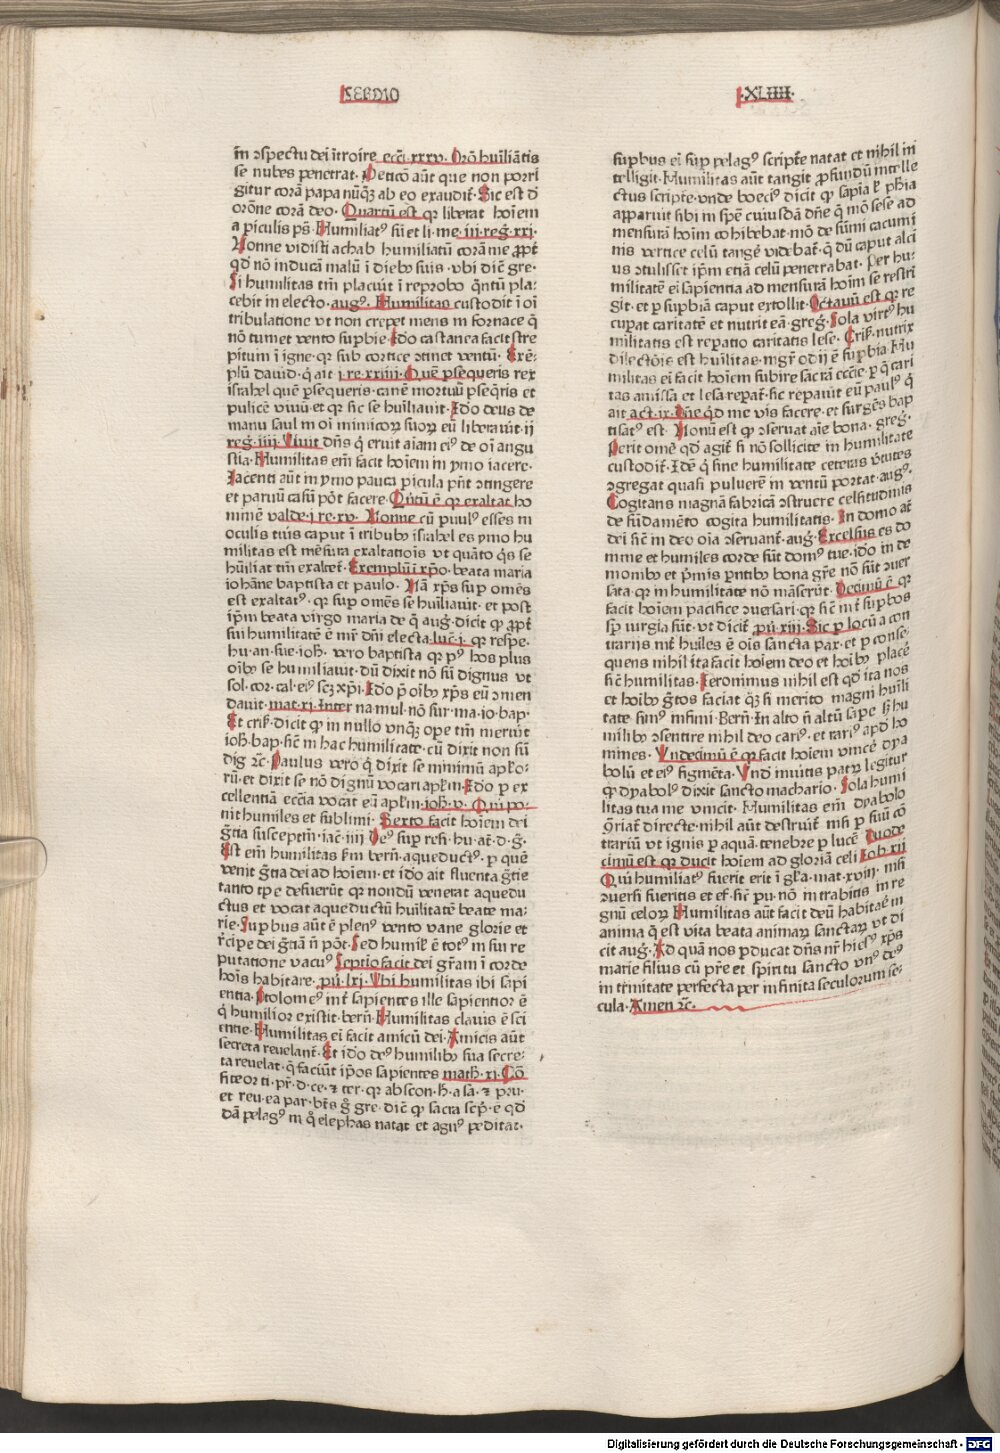 SERMO
.XLIIII.
in ɔspectu dei ītroire ecci. xxxv. Orō huīliātis
se nubes penetrat. Peticō aūt que non porri
gitur corā papa nūq̄ʒ ab eo exaudit᷑. Sic est d̄
orōne corā deo. Quartū est qꝛ liberat hoīem
a ꝑiculis p̄s. Humiliatꝰ sū et li. me. iii. reg. xxi.
Nonne vidisti achab humiliatū corā me ꝓpt̄
qd̓ nō inducā malū ī diebꝰ suis. vbi dic̄ gre.
Si humilitas tm̄ placuit ī reprobo q̄ntū pla-
cebit in electo. augꝰ. Humilitas custodit ī oī
tribulatione vt non crepet mens in fornace q̄
nō tumet vento suꝑbie. Ido castanea facit stre
pitum ī igne. qꝛ sub cortice ɔtinet ventū. Exē-
plū dauid. q̄ ait i. re. xxiiii. Quē ꝑsequeris rex
israhel quē ꝑsequeris. canē mortuū ꝑseq̄ris et
pulicē viuū. et qꝛ sic se huīliauit. Ido deus de
manu saul in oī inimicoꝝ suoꝝ eū liberauit. ii
reg. iiii. Viuit dn̄s q̄ eruit aīam eiꝰ de oī angu
stia. Humilitas em̄ facit hoīem in ymo iacere.
Iacenti aūt in ymo pauca ꝑicula pn̄t ɔtingere
et paruū casū pōt facere. Qn̄tū ē qꝛ exaltat ho
minē valde. i. re. xv. Nonne cū puulꝰ esses in
oculis tuis caput ī tribubꝰ israhel es ymo hu
militas est mēsura exaltatiōis vt quāto q̄s se
hūiliat tm̄ exaltet᷑. Exemplū ī xp̄o. beata maria
iohāne baptista et paulo. Nā xp̄s suꝑ omēs
est exaltatꝰ. qꝛ suꝑ omēs se huīliauit. et post
ip̄m beata virgo maria de q̄ aug. dicit ꝙ ꝓpt̄
sui humilitatē ē mr̄ dn̄i electa. luc̄. i. qꝛ respe.
hu. an. sue. ioh̄. vero baptista qꝛ pꝰ hos plus
oībꝰ se humiliauit. dū dixit nō sū dignus vt
sol. cor. cal. eiꝰ scʒ xp̄i. Ido p̄ oībꝰ xp̄s eū ɔmen
dauit. mat. xi. Inter na. mul. nō sur. ma. io. bap.
Et cris̄. dicit ꝙ in nullo vnq̄ʒ ope tm̄ meruit
ioh̄. bap. sic̄ in hac humilitate. cū dixit non sū
dig ꝛc. Paulus vero q̄ dixit se minimū apl̄o-
rū. et dixit se nō dignū vocari apl̄m. Ido ꝑ ex
cellentiā eccīa vocat eū apl̄m. ioh̄. v. Qui po-
nit humiles et sublimi. Sexto facit hoīem dei
gr̄tia susceptem̄. iac̄. iiii Deꝰ suꝑ resi. hu. at̄. d. g.
Est em̄ humilitas sm̄ bern̄. aqueductꝰ. ꝑ quē
venit gr̄tia dei ad hoīem. et ido ait fluenta gr̄tie
tanto tꝑe defuerūt qꝛ nondū venerat aquedu
ctus et vocat aqueductū huīlitatē beate ma-
rie. Suꝑbus aūt ē plenꝰ vento vane glorie et
r̄ciꝑe dei gr̄tiā n̄ pōt. Sed humil̄ ē totꝰ in sui re
putatione vacuꝰ Septio facit dei gr̄am ī corde
hoīs habitare. pū. lxi. Vbi humilitas ibi sapi
entia. Ptolomeꝰ int̄ sapientes ille sapientior ē
q̄ humilior existit. bern̄. Humilitas clauis ē sci
entie. Humilitas ei facit amicū dei. Amicis aūt
secreta reuelant̄. Et ido deꝰ humilibꝰ sua secre-
ta reuelat. q̄ faciūt ip̄os sapientes math. xi. Cō
fiteor ti. pr̄. d. ce. ⁊ ter. qꝛ abscon. h̄. a sā. ⁊ pru.
et reu. ea par. vn̄s g̊ gre. dic̄ ꝙ sacra scp̄. e qd̓
dā pelagꝰ in q̊ elephas natat et agnꝰ peditat.
suꝑbus ei suꝑ pelagꝰ scripte natat et nihil in
telligit. Humilitas aūt tangit ꝓfundū intelle
ctus scripte. vnde boeciꝰ dicit ꝙ sapīa l̄ phīa
apparuit sibi in spē cuiusdā dn̄e q̄ mō sese ad
mensurā hoīm cohibebat. mō de sūmi cacumi
nis vertice celū tange᷑ videbat᷑. q̄ dū caput alci
us ɔtulisset ip̄m etiā celū penetrabat. Per hu-
militatē ei sapientia ad mensurā hoīm se restri
git. et ꝑ suꝑbiā caput extollit. Octauū est qꝛ re
cuꝑat caritatē et nutrit eā. greg̓. Sola virtꝰ hu
militatis est reꝑatio caritatis lese. Cris̄. nutrix
dilectōis est huīlitas. mgr̄ odij ē suꝑbia. Hu
militas ei facit hoīem subire sacrā ecc̄ie. ꝑ q̄ cari
tas amissa et lesa reꝑat᷑. sic reꝑauit eū paulꝰ q̄
ait act. ix. Dn̄e qd̓ me vis facere. et surgēs bap
tisatꝰ est. Nonū est ꝙ ɔseruat aīe bona. greg̓.
Perit omē qd̓ agit᷑ si nō sollicite in humilitate
custodit᷑. Idē q̄ sine humilitate ceteras v̓tutes
ɔgregat quasi puluerē in ventū portat. augꝰ.
Cogitans magnā fabricā ɔstruere celsitudinis
de fūdamēto cogita humilitatis. In domo at̄
dei sic̄ in deo oīa ɔseruant᷑. aug̓. Excelsus es do
mine et humiles corde sūt domꝰ tue. ido in de
monibꝰ et p̄mis ꝑntibꝰ bona gr̄e nō sūt ɔser
sata. qꝛ in humilitate nō māserūt. Decimū ē qꝛ
facit hoīem pacifice ɔuersari. qꝛ sic̄ int̄ suꝑbos
sp̄ iurgia sūt. vt dicit᷑ pū. xiii. Sic ꝑ locū a con
trariis int̄ huīles ē oīs sancta pax. et ꝑ conse-
quens nihil ita facit hoīem deo et hoībꝰ place᷑
sic̄ humilitas. Ieronimus nihil est qd̓ ita nos
et hoībꝰ g̓tos faciat q̄ʒ si merito magni huīli
tate simꝰ infimi. Bern̄. In alto n̄ altū saꝑe sʒ hu
milibꝰ ɔsentire nihil deo cariꝰ. et rariꝰ apd̓ ho
mines. Vndecimū ē qꝛ facit hoīem vince᷑ dya
bolū et eiꝰ figmēta. Vnd̓ in vitis patꝝ legitur
ꝙ dyabolꝰ dixit sancto machario. Sola humi
litas tua me vincit. Humilitas em̄ dyabolo
ɔ̄riat᷑ directe. nihil aūt destruit᷑ nisi ꝑ suū cō
trariū vt ignis ꝑ aquā. tenebre ꝑ lucē. Duode
cimū est qꝛ ducit hoīem ad gloriā celi Iob. xii
Quī humiliatꝰ fuerit erit ī gl̄a. mat. xviii. nisi
ɔuersi fueritis et ef. sic̄ ꝑu. nō intrabitis in re
gnū celoꝝ Humilitas aūt facit deū habitare in
anima q̄ est vita beata animaꝝ sanctaꝝ vt di
cit aug̓. Ad quā nos ꝑducat dn̄s nr̄ hic̄sꝰ xp̄s
marie filius cū pr̄e et spiritu sancto vnꝰ deꝰ
in trinitate perfecta per infinita seculorum se-
cula. Amen ꝛc.
Digitalisierung gefördert durch die Deutsche Forschungsgemeinschaft - DFG